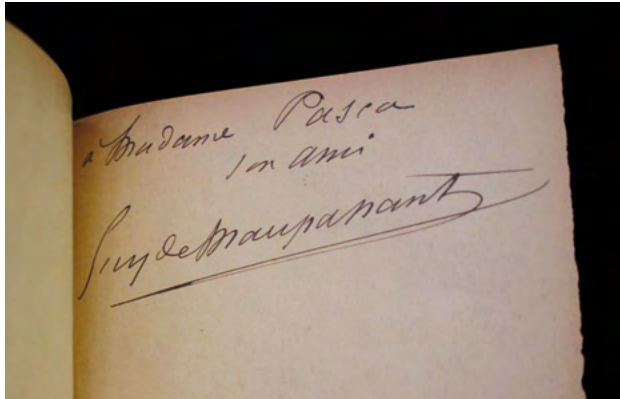 à Madame Pasca
son ami
Guy de Maupassant